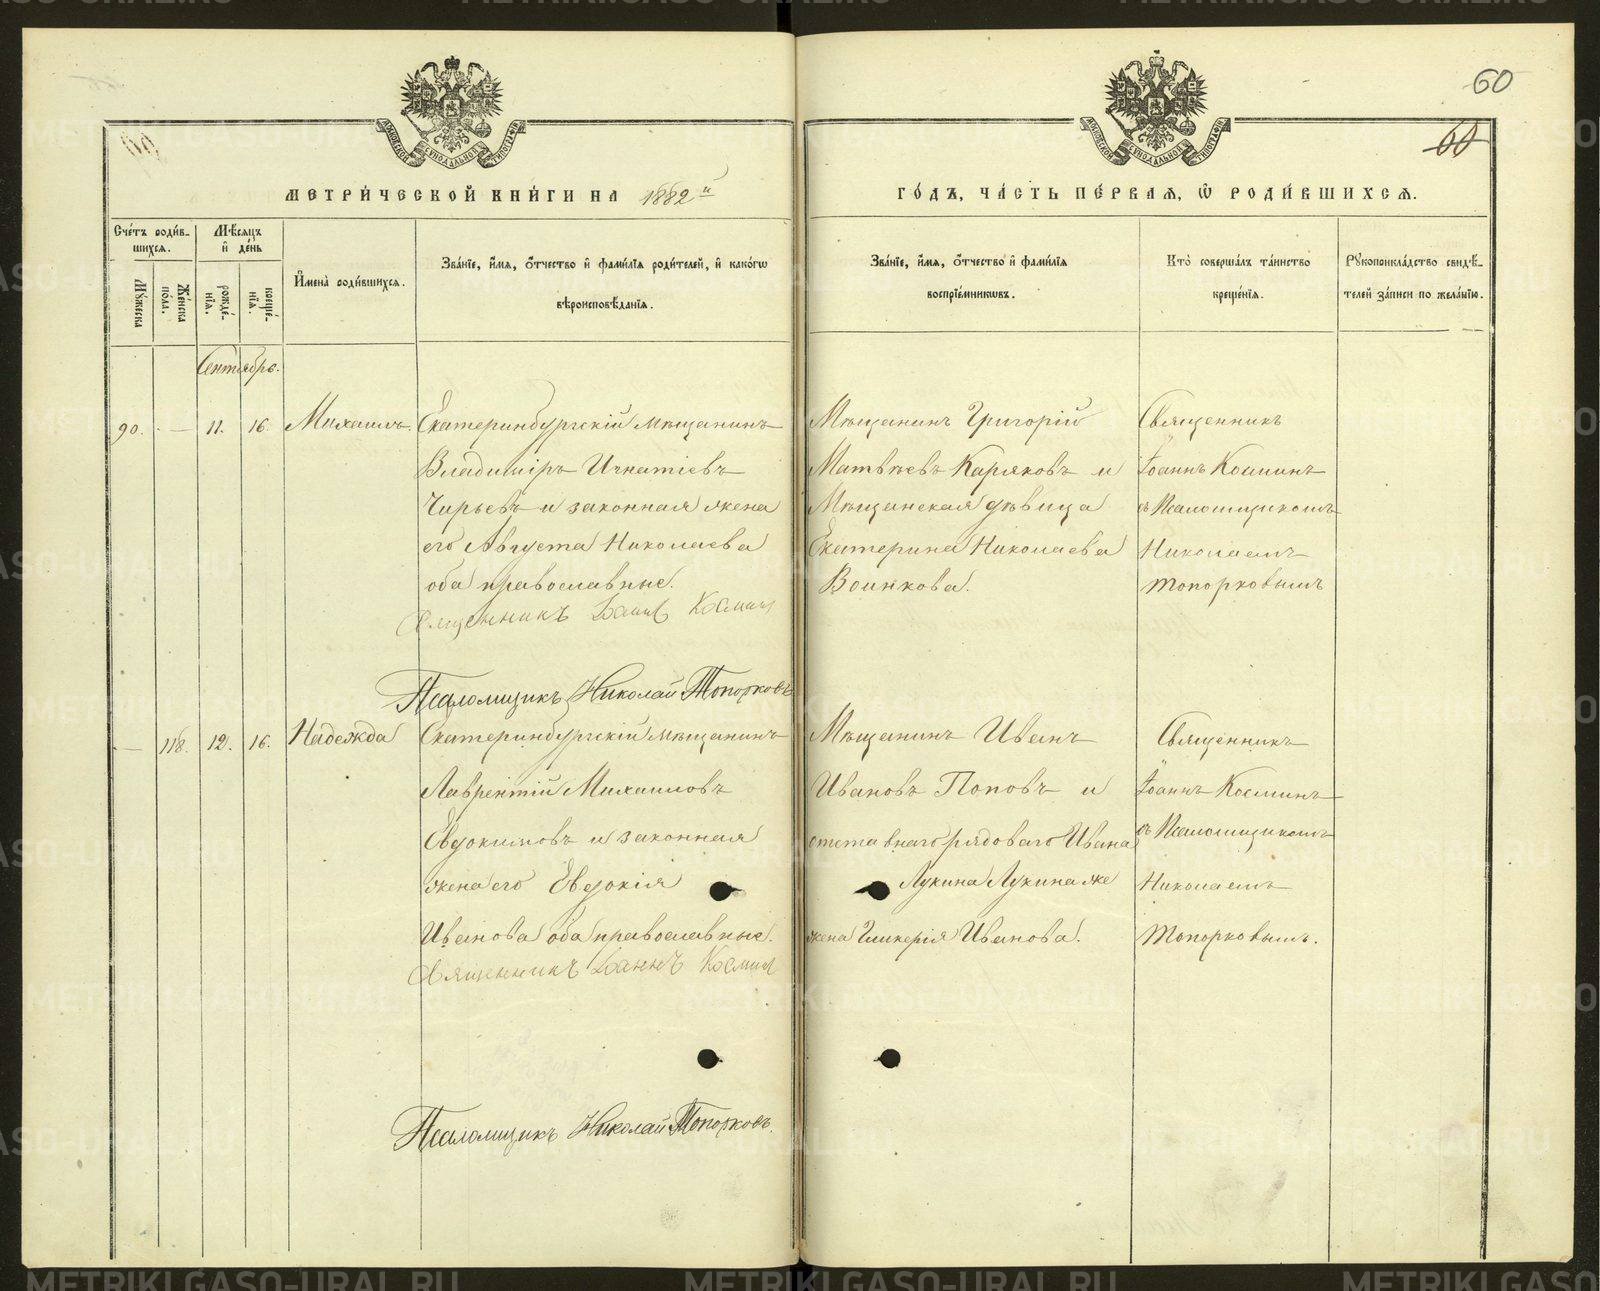 60
60
МОСКОВСКОЙ СѴНОДАЛЬНОЙ ТИПОГРАФІИ
МОСКОВСКОЙ СѴНОДАЛЬНОЙ ТИПОГРАФІИ
МЕТРИ́ЧЕСКОЙ КНИ́ГИ НА 1882й
ГО́ДЪ, ЧА́СТЬ ПЕ́РВАЯ, Ѡ РОДИ́ВШИХСЯ.
Сче́тъ роди́в-
шихся.
Мꙋ́жеска
Же́нска
по́ла.
Мѣ́сяцъ
и҆ де́нь
рожде́-
нїѧ.
креще́-
нїѧ.
И҆мена̀ роди́вшихся.
Зва́нїе, и҆́мѧ, ѻ҆́тчество и҆ фами́лїѧ роди́телей, и҆ како́гѡ
вѣроисповѣ́данїѧ.
Зва́нїе, и҆́мѧ, ѻ҆́тчество и҆ фами́лїѧ
воспрїе́мникѡвъ.
Кто̀ соверша́лъ та́инство
креще́нїѧ.
Рꙋкоприкла́дство свидѣ́-
телей за́писи по жела́нїю.
Сентябрь.
90.
—
11.
16.
Михаилъ.
Екатеринбургскій мѣщанинъ
Владиміръ Игнатіевъ
Чирьевъ и законная жена
его Августа Николаева
оба православные.
Священникъ Іоаннъ Косминъ
Псаломщикъ Николай Топорковъ
Мѣщанинъ Григорій
Матвѣевъ Каряковъ и
Мѣщанская дѣвица
Екатерина Николаева
Воинкова.
Священникъ
Іоаннъ Косминъ
съ Псаломщикомъ
Николаемъ
Топорковымъ
—
118.
12.
16.
Надежда
Екатеринбургскій мѣщанинъ
Лаврентій Михаиловъ
Евдокимовъ и законная
жена его Евдокія
Иванова оба православные.
Священникъ Іоаннъ Косминъ
Псаломщикъ Николай Топорковъ.
Мѣщанинъ Иванъ
Ивановъ Поповъ и
отставнаго рядоваго Ивана
Лукина Лукина же
жена Гликерія Иванова.
Священникъ
Іоаннъ Косминъ
съ Псаломщикомъ
Николаемъ
Топорковымъ.
METRIKI.GASO-URAL.RU